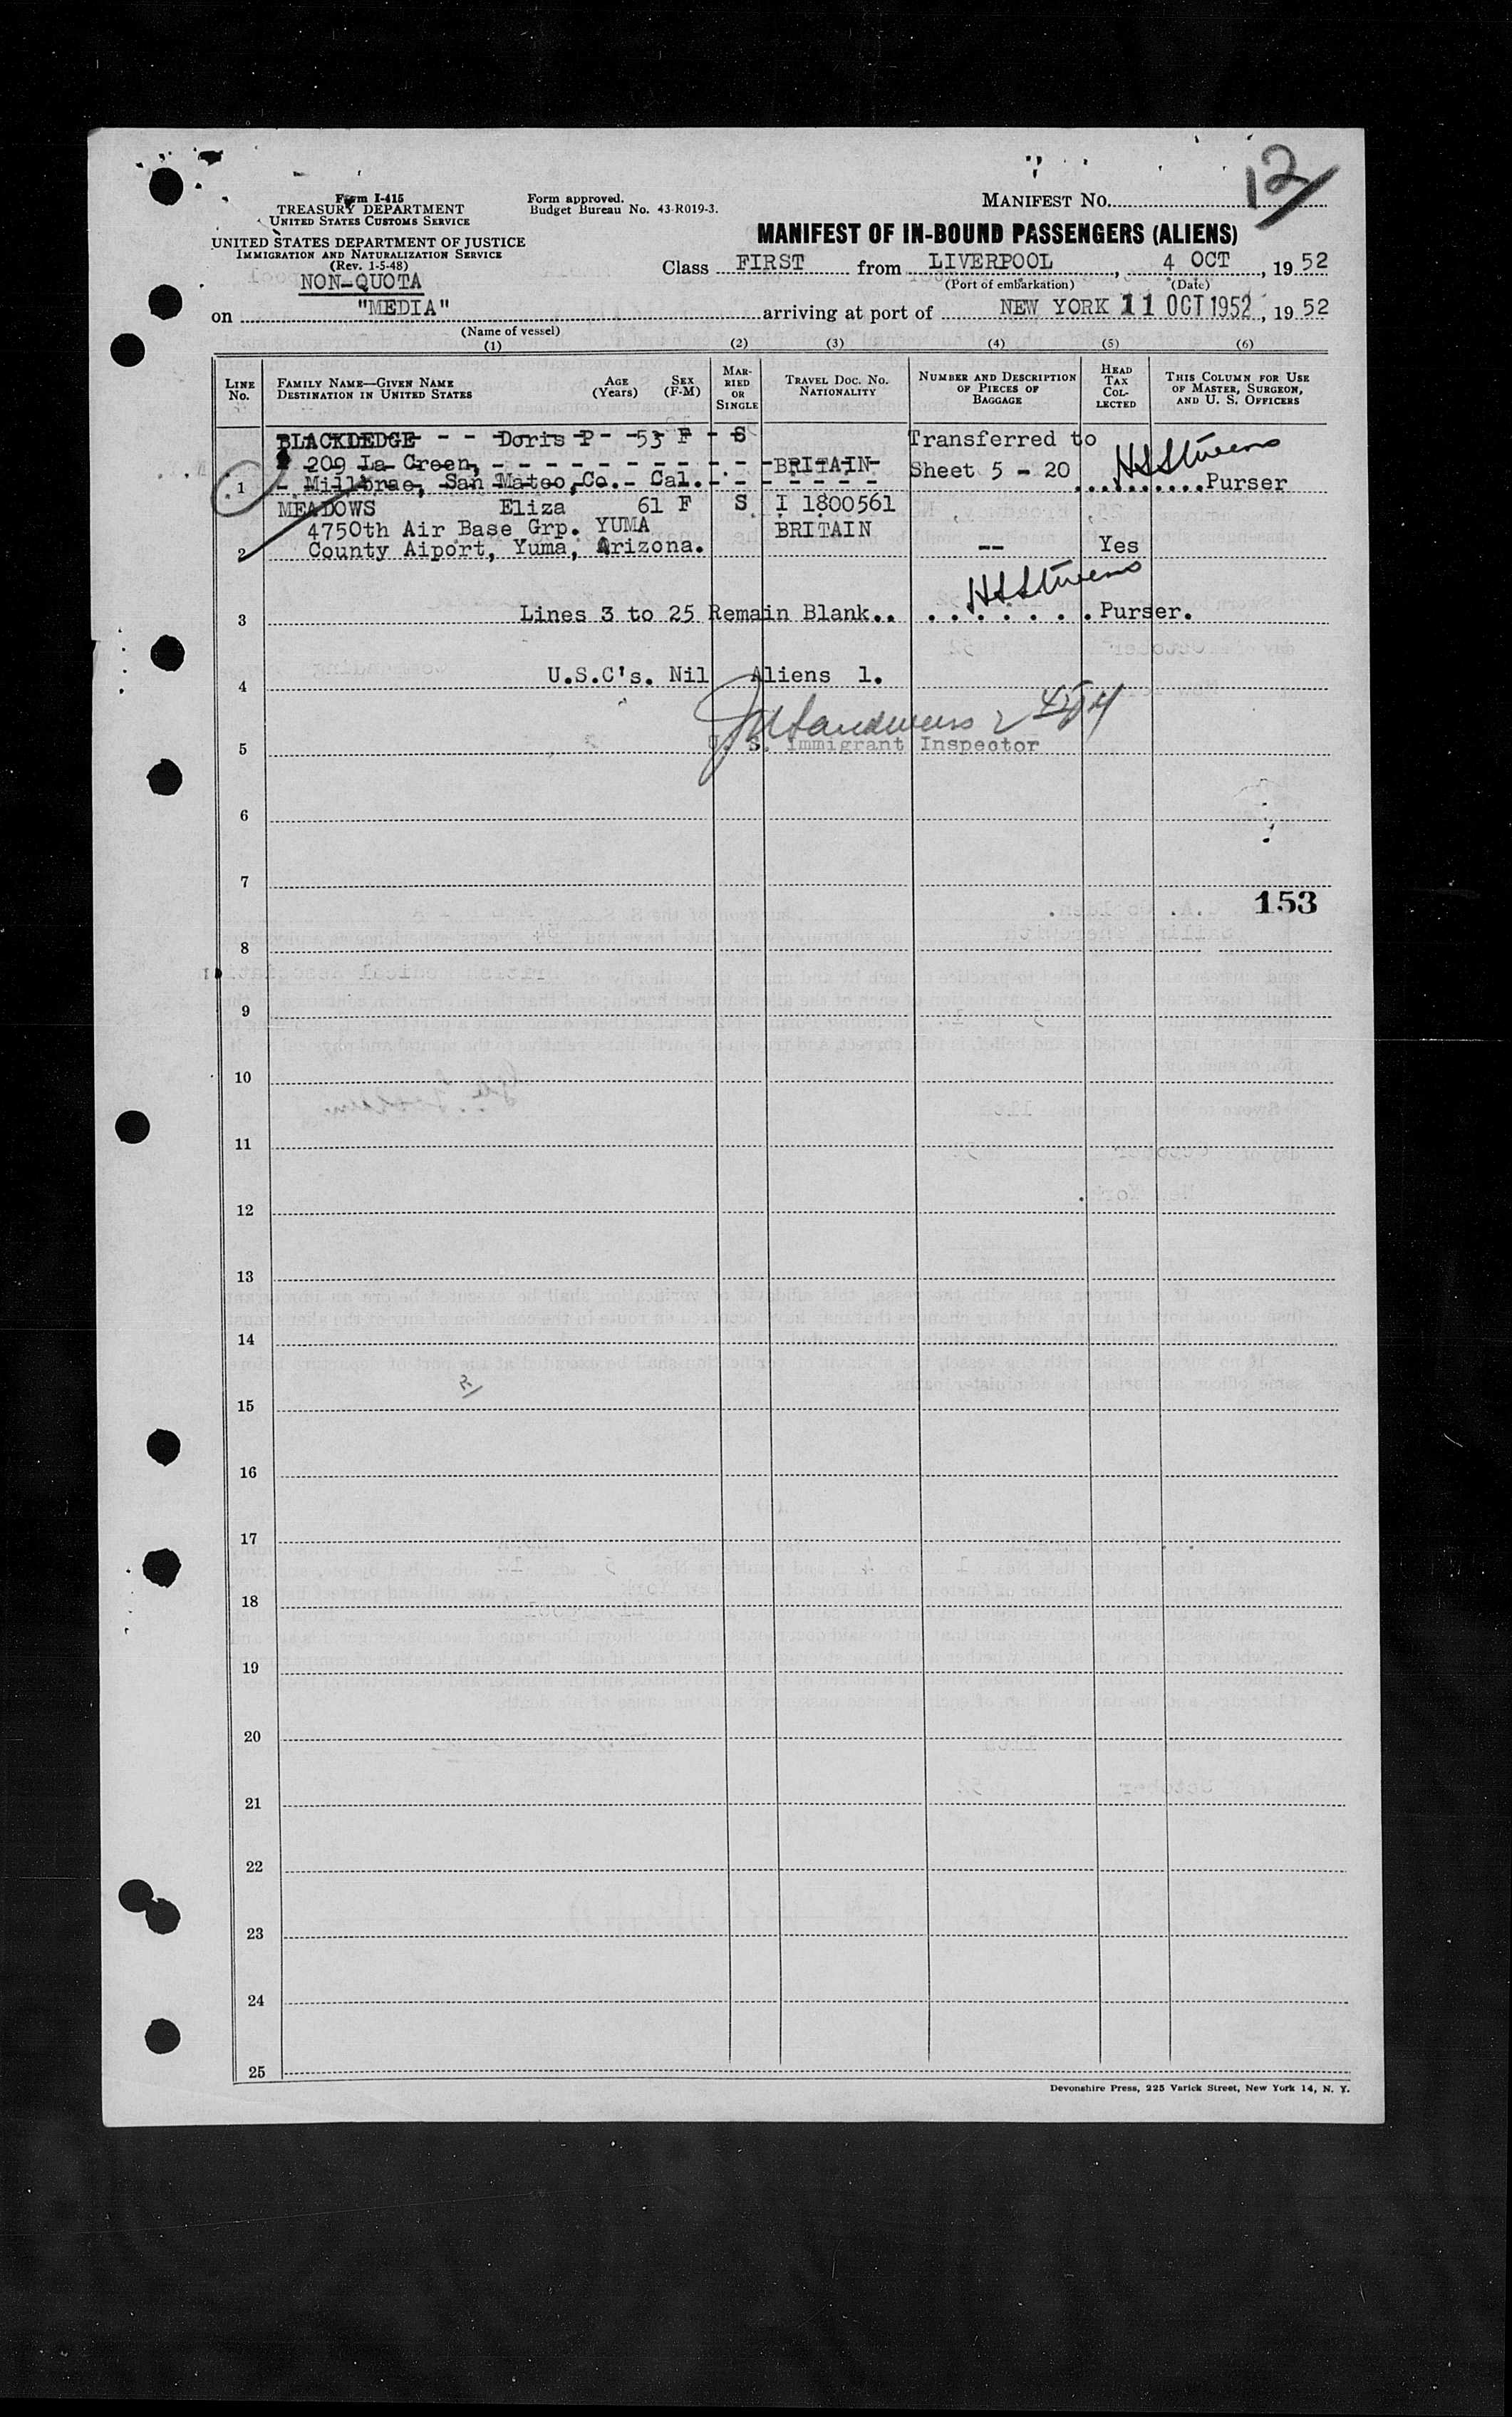 12
Form I-415
TREASURY DEPARTMENT
UNITED STATES CUSTOMS SERVICE
Form approved.
Budget Bureau No. 43-R019-3.
MANIFEST No.
UNITED STATES DEPARTMENT OF JUSTICE
IMMIGRATION AND NATURALIZATION SERVICE
(Rev. 1-5-48)
MANIFEST OF IN-BOUND PASSENGERS (ALIENS)
Class FIRST from LIVERPOOL, 4 OCT, 1952
(Port of embarkation) (Date)
NON-QUOTA
on "MEDIA" arriving at port of NEW YORK 11 OCT 1952, 1952
(Name of vessel)
(1) (2) (3) (4) (5) (6)
LINE No.
FAMILY NAME—GIVEN NAME
DESTINATION IN UNITED STATES
AGE (Years)
SEX (F-M)
MARRIED OR SINGLE
TRAVEL DOC. No.
NATIONALITY
NUMBER AND DESCRIPTION OF PIECES OF BAGGAGE
HEAD TAX COLLECTED
THIS COLUMN FOR USE OF MASTER, SURGEON, AND U. S. OFFICERS
BLACKLEDGE - - Doris P - - 53 F - S Transferred to
209 La Creen, - - - BRITAIN- Sheet 5 - 20 HSStevens
1 - Millbrae, San Mateo, Co. - Cal. - - - ..........Purser
MEADOWS Eliza 61 F S I 1800561
4750th Air Base Grp. YUMA BRITAIN
2 County Aiport, Yuma, Arizona. -- Yes
HSStevens
3 Lines 3 to 25 Remain Blank.. . . . . . . .Purser.
4 U.S.C's. Nil Aliens 1.
5 U. S. Immigrant Inspector
6
7
153
8
9
10
11
12
13
14
15
16
17
18
19
20
21
22
23
24
25
Devonshire Press, 225 Varick Street, New York 14, N. Y.